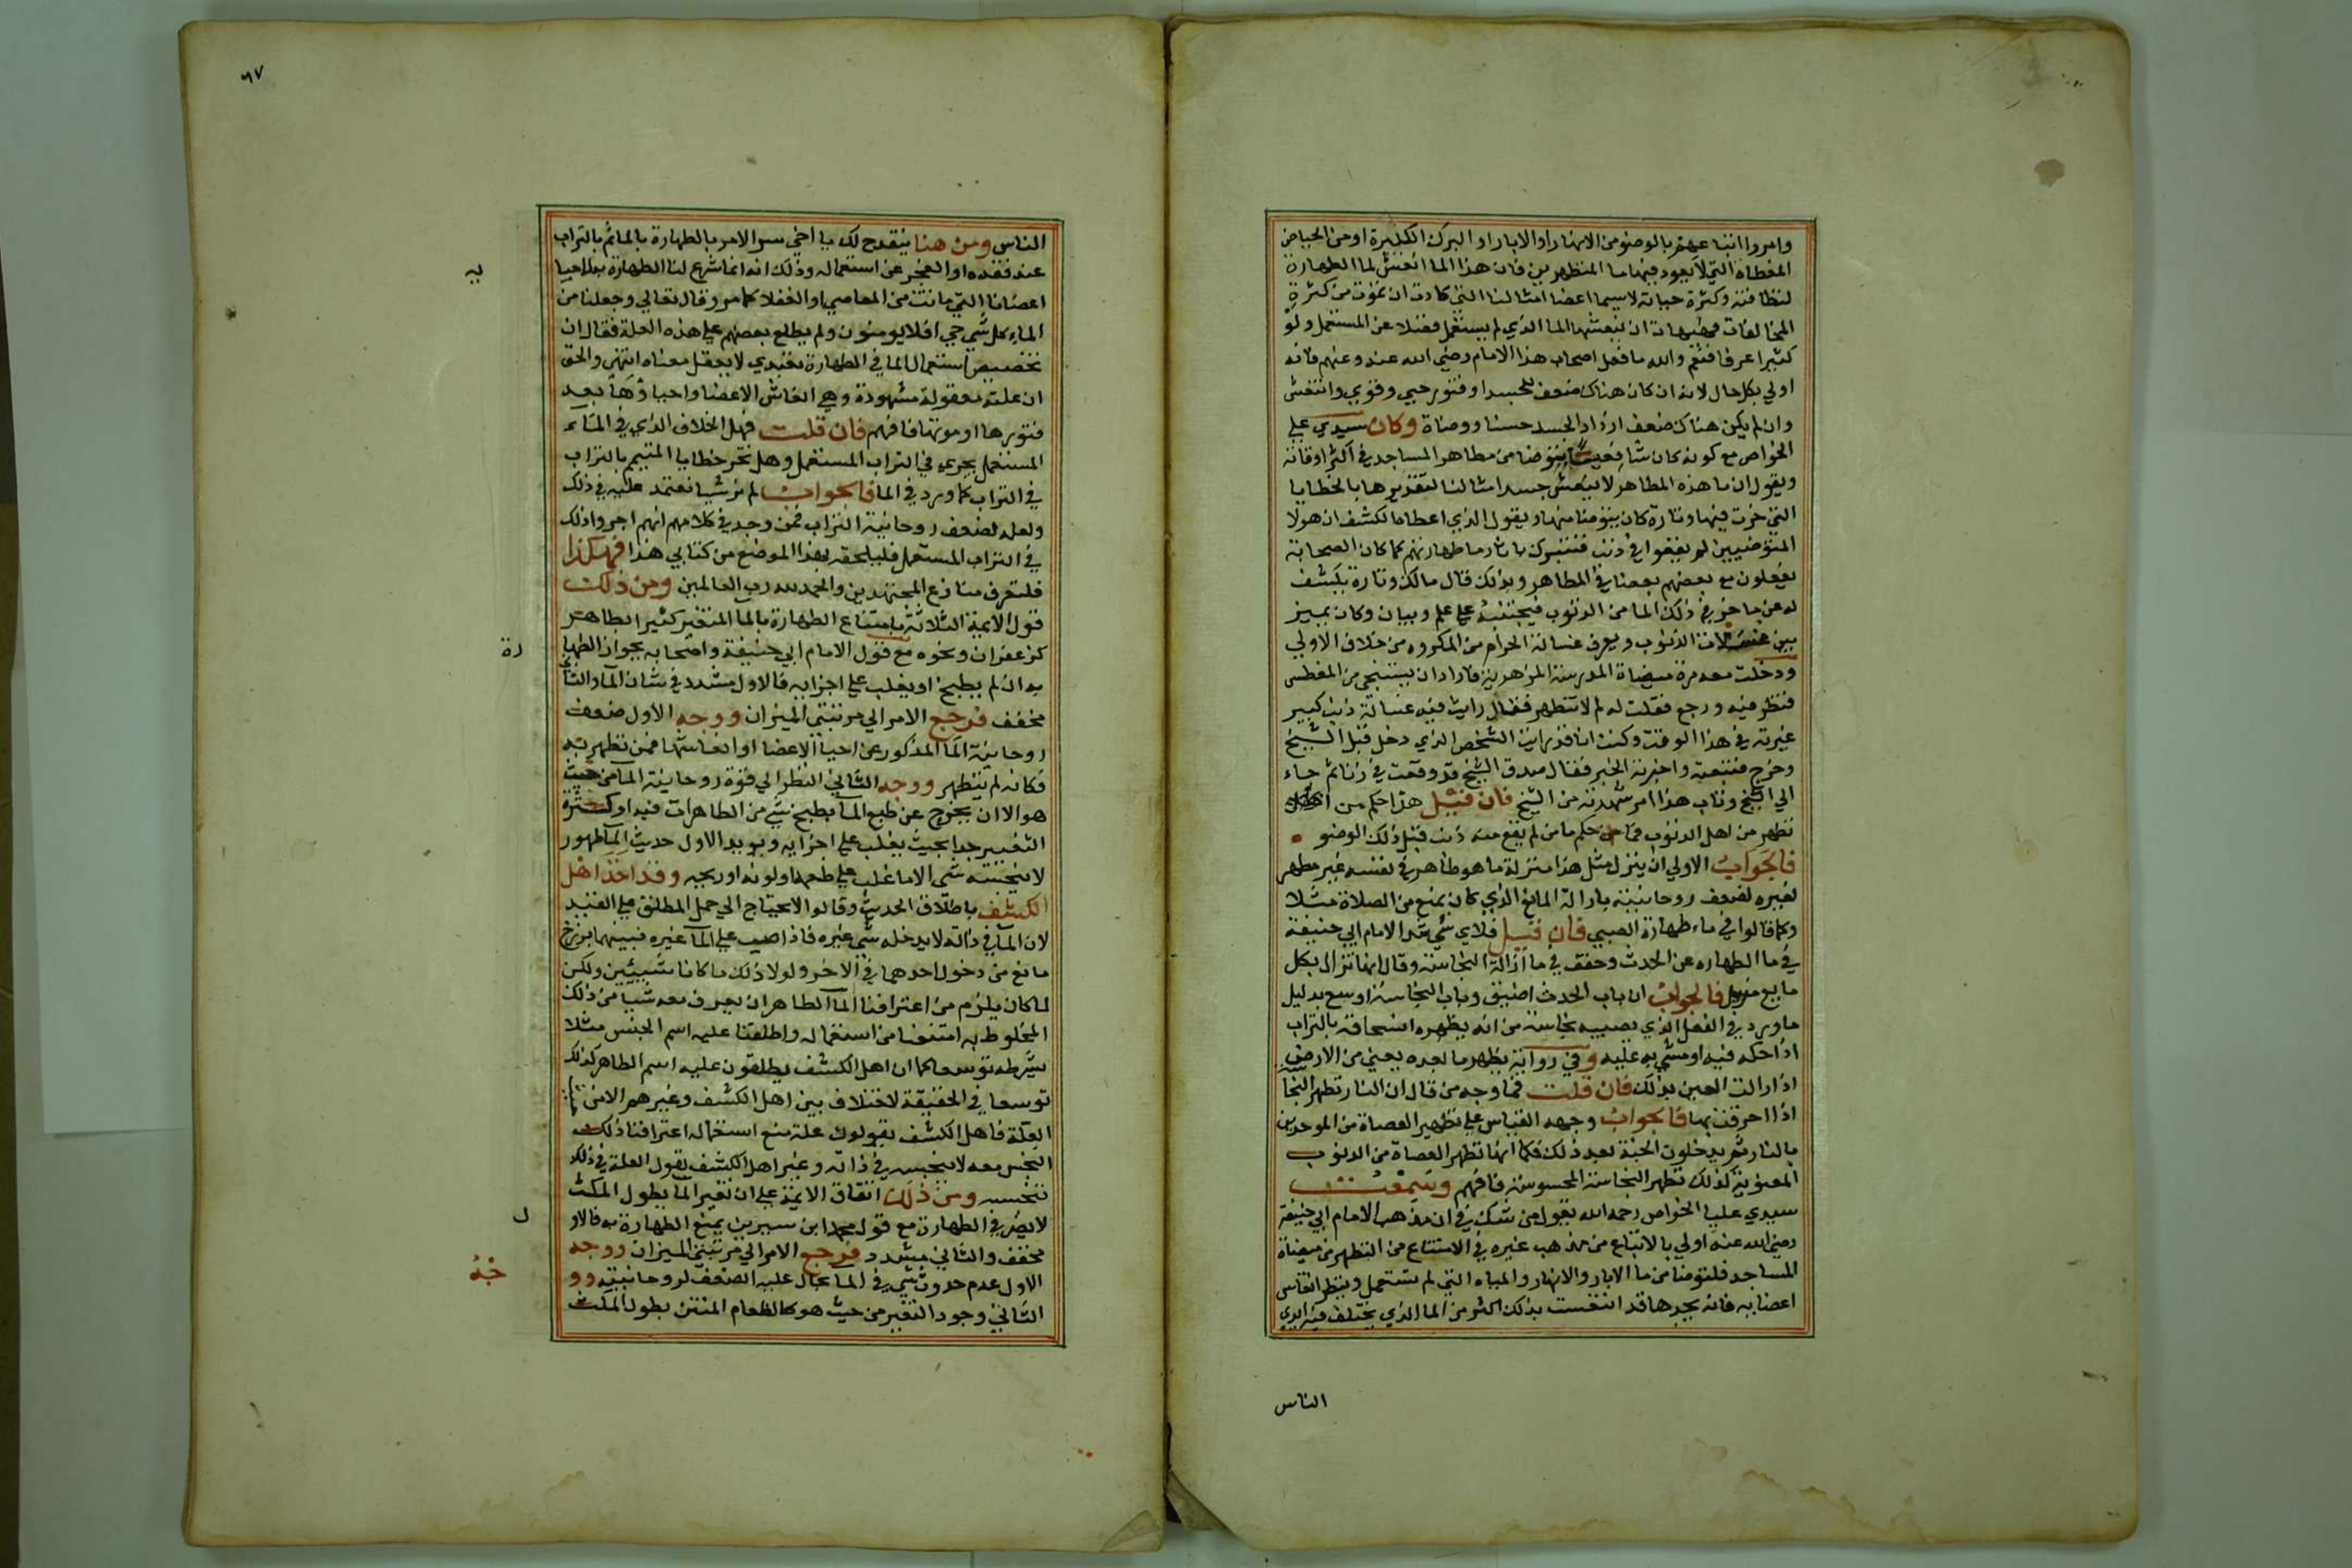 وامروا اتباعهم بالوضوء من الانهار او الابار او البرك الكبيرة او من الحياض
المغطاة التي لا يعود فيها ما المتطهرين فان هذا الما انعش لما الطهارة
لنظافته وكثرة حياته لاسيما اعضا امثالنا التي كادت ان تموت من كثرة
المخالفات فهيهات ان ينعشها الما الذي لم يستعمل فضلا عن المستعمل ولو
كثيرا عرفا فنعم والله ما فعل اصحاب هذا الامام رضي الله عنه وعنهم فانه
اولي بكل حال لانه ان كان هناك ضعف للجسد او فتور حيي وقوي وانتعش
وان لم يكن هناك ضعف ازداد الجسد حسنا ووضاة وكان سيدي علي
الخواص مع كونه كان شافعيا يتوضا من مطاهر المساجد في اكثر اوقاته
ويقول ان ما هذه المطاهر لا ينعش جسد امثالنا لتقذيرها بالخطايا
التي خرت فيها وتارة كان يتوضا منها ويقول الذي اعطاه الكشف ان هولا
المتوضيين لم يقعوا في ذنب فنتبرك باثار ما طهارتهم كما كان الصحابة
يفعلون مع بعضهم بعضا في المطاهر وبذلك قال مالك وتارة يكشف
له عن ما خر في ذلك الما من الذنوب فيجتنبه علي علم وبيان وكان يميز
بين غسالات الذنوب ويعرف غسالة الحرام من المكروه من خلاف الاولي
ودخلت معه مرة ميضاة المدرسة الازهرية فاراد ان يستنجي من المغطس
فنظر فيه ورجع فقلت له لم لا تتطهر فقال رايت فيه غسالة ذنب كبير
غيرته في هذا الوقت وكنت انا قد رايت الشخص الذي دخل قبل الشيخ
وخرج فتبعته واخبرته الخبر فقال صدق الشيخ قد وقعت في زنا ثم جاء
الي الشيخ وتاب هذا امر شهدته من الشيخ فان قيل هذا حكم من
تطهر من اهل الذنوب فما حكم ما من لم يقع منه ذنب قبل ذلك الوضو
فالجواب الاولي ان ينزل مثل هذا منزلة ما هو طاهر في نفسه غير مطهر
لغيره لضعف روحانيته بازالة المانع الذي كان يمنع من الصلاة مثلا
وكما قالوا في ماء طهارة الصبي فان قيل فلاي شي شدد الامام ابي حنيفة
في ما الطهاره عن الحدث وخفف في ما ازالة النجاسة وقال انها تزال بكل
مايع مزيل فالجواب ان باب الحدث اضيق وباب النجاسة اوسع بدليل
ما ورد في النعل الذي يصيبه نجاسة من انه يطهره انسحاقه بالتراب
اذا حكه فيه او مشي به عليه وفي رواية يطهر ما بعده يعني من الارض
اذا زالت العين بذلك فان قلت فما وجه من قال ان النار تطهر النجاسة
اذا احرقت بها فالجواب وجهه القياس علي تطهير العصاة من الموحدين
بالنار ثم يدخلون الجنة بعد ذلك فكما انها تطهر العصاة من الذنوب
المعنوية كذلك تطهر النجاسة المحسوسة فافهم وسمعت
سيدي عليا الخواص رحمه الله يقول من شك في ان مذهب الامام ابي حنيفة
رضي الله عنه اولي بالاتباع من مذهب غيره في الامتناع من التطهر من ميضاة
المساجد فليتوضا من ما الابار والانهار والمياه التي لم تستعمل وينظر انتعاش
اعضايه فانه يجدها قد انتعشت بذلك اكثر من الما الذي يختلف فيه ايدي
الناس
٦٧
الناس ومن هنا ينقدح لك يا اخي سر الامر بالطهارة بالما ثم بالتراب
عند فقده او العجز عن استعماله وذلك انه انما شرع لنا الطهارة به لاحيا
اعضانا التي ماتت من المعاصي او الغفلا كما مر وقال تعالي وجعلنا من
الماء كل شي حي افلا يومنون ولم يطلع بعضهم علي هذه العلة فقال ان
تخصيص استعمال الما في الطهارة تعبدي لا يعقل معناه انتهي والحق
ان علته معقولة مشهودة وهي انعاش الاعضا واحياوها بعد
فتورها او موتها فافهم فان قلت فهل الخلاف الذي في الماء
المستعمل يجري في التراب المستعمل وهل تخر خطايا المتيمم بالتراب
في التراب كما ورد في الما فالجواب لم نر شيا نعتمد عليه في ذلك
ولعله لضعف روحانية التراب فمن وجد في كلامهم انهم اجروا ذلك
في التراب المستعمل فليلحقه بهذا الموضع من كتابي هذا فهكذا
فلتعرف منازع المجتهدين والحمد لله رب العالمين ومن ذلك
قول الايمة الثلاثة بامتناع الطهارة بالما المتغير كثيرا بطاهر
كزعفران ونحوه مع قول الامام ابي حنيفة واصحابه بجواز الطها
رة
به ان لم يطبخ او يغلب علي اجزايه فالاول مشدد في شان الماء والثاني
مخفف فرجع الامر الي مرتبتي الميزان ووجه الاول ضعف
روحانية الما المذكور عن احيا الاعضا او انعاشها فمن تطهر به
فكانه لم يتطهر ووجه الثاني النظر الي قوة روحانية الما من حيث
هو الا ان يخرج عن طبع الما بطبخ شي من الطاهرات فيه او كثرة
التغيير جدا بحيث يغلب علي اجزايه ويويد الاول حديث الما طهور
لا ينجسه شي الا ما غلب علي طعمه او لونه او ريحه وقد اخذ اهل
الكشف باطلاق الحديث وقالوا لا يحتاج الي حمل المطلق علي المقيد
لان الما في ذاته لا يدخله شي غيره فاذا صب علي الما غيره فبينهما برزخ
مانع من دخول احدهما في الاخر ولولا ذلك ما كانا شييين ولكن
لما كان يلزم من اعترافنا الما الطاهر ان يغرف معه شيا من ذلك
المخلوط به امتنعنا من استعماله واطلقنا عليه اسم الجنس مثلا
بشرطه توسعا كما ان اهل الكشف يطلقون عليه اسم الطاهر كذلك
توسعا في الحقيقة لاختلاف بين اهل الكشف وغيرهم الا من
العلة فاهل الكشف يقولون علة منع استعماله اعترافنا ذلك
النجس معه لا بنجسه في ذاته وغير اهل الكشف يقول العلة في ذلك
تنجسه ومن ذلك اتفاق الايمة علي ان تغير الما بطول المكث
لا يضر في الطهارة مع قول محمد ابن سيرين يمنع الطهارة به فالاو
ل
مخفف والثاني مشدد فرجع الامر الي مرتبتي الميزان ووجه
الاول عدم حدوث شي في الما يحال عليه الضعف لروحانيته وو
جه
الثاني وجود التغير من حيث هو كالطعام المنتن بطول المكث